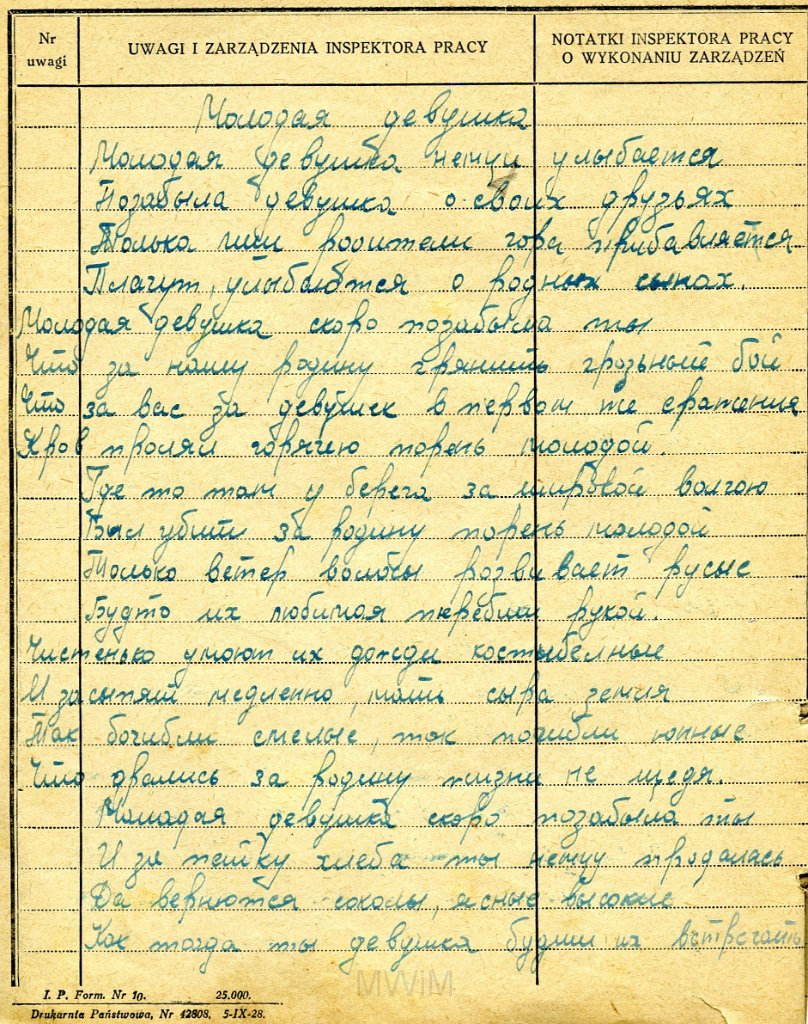 Nr uwagi
UWAGI I ZARZĄDZENIA INSPEKTORA PRACY
NOTATKI INSPEKTORA PRACY
O WYKONANIU ZARZĄDZEŃ
Молодая девушка
Молодая девушка немцу улыбается
Позабыла девушка о своих друзьях
Только лиш родители гора прибавляется
Плачут, улыбаются о родных сынах.
Молодая девушка скоро позабыла ты
Что за нашу родину грянить грозьный бой
Что за вас за девушек в первом же сражения
Кров пролял горячею порень молодой.
Где то там у берега за широкой волгою
Был убит за родину порень молодой
Только ветер волосы розвивает русые
Будто их любимая рукой.
Чистенько умоют их дожди
И засыпят медленно, мать сыра земля
Так погибли смелые, так погибли юные
Что дрались за родину жизни не щедя.
Моладая девушка скоро позабыла ты
И за пайку хлеба ты немцу продалась
Да вернются соколы, ясные высокие
Как тогда ты девушка будиш их встречать
MWiM
I. P. Form. Nr 10. 25.000.
Drukarnia Państwowa, Nr 42808. 5-IX-28.